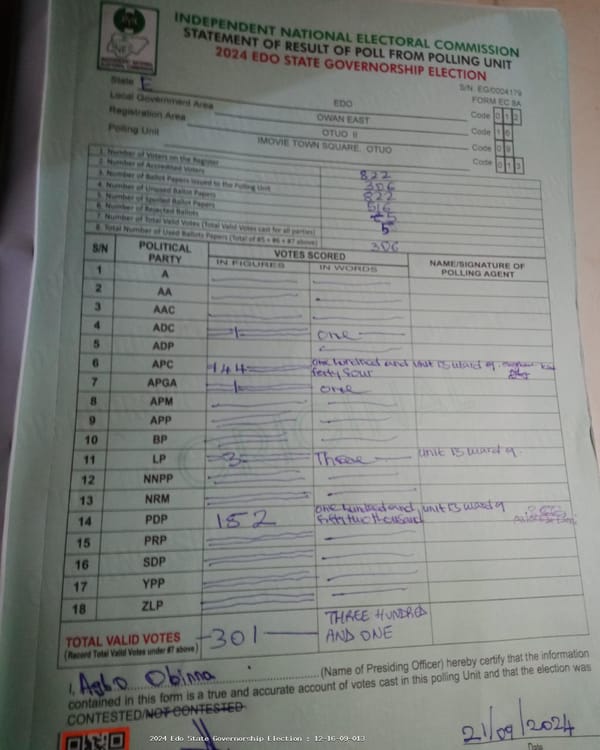 INDEPENDENT NATIONAL ELECTORAL COMMISSION
STATEMENT OF RESULT OF POLL FROM POLLING UNIT
2024 EDO STATE GOVERNORSHIP ELECTION
S/N. EG/0004179
FORM EC 8A
State E EDO Code 0 1 2
Local Government Area OWAN EAST Code 1 6
Registration Area OTUO II Code 0 9
Polling Unit IMOVIE TOWN SQUARE, OTUO Code 0 1 3
1. Number of Voters on the Register 822
2. Number of Accredited Voters 306
3. Number of Ballot Papers Issued to the Polling Unit 822
4. Number of Unused Ballot Papers 516
5. Number of Spoiled Ballot Papers
6. Number of Rejected Ballots 5
7. Number of Total Valid Votes (Total Valid Votes cast for all parties)
8. Total Number of Used Ballots Papers (Total of #5 + #6 + #7 above) 306
S/N POLITICAL PARTY VOTES SCORED NAME/SIGNATURE OF POLLING AGENT
IN FIGURES IN WORDS
1 A
2 AA
3 AAC
4 ADC 1 one
5 ADP
6 APC 144 one hundred and forty four unit 13 ward 9
7 APGA 1 one
8 APM
9 APP
10 BP
11 LP 3 Three unit 13 ward 9
12 NNPP
13 NRM
14 PDP 152 one hundred and fifty two thousand unit 13 ward 9
15 PRP
16 SDP
17 YPP
18 ZLP
TOTAL VALID VOTES 301 THREE HUNDRED AND ONE
(Record Total Valid Votes under #7 above)
I, Agbo Obinna (Name of Presiding Officer) hereby certify that the information
contained in this form is a true and accurate account of votes cast in this polling Unit and that the election was
CONTESTED/NOT CONTESTED
21/09/2024
Date
2024 Edo State Governorship Election : 12-16-09-013